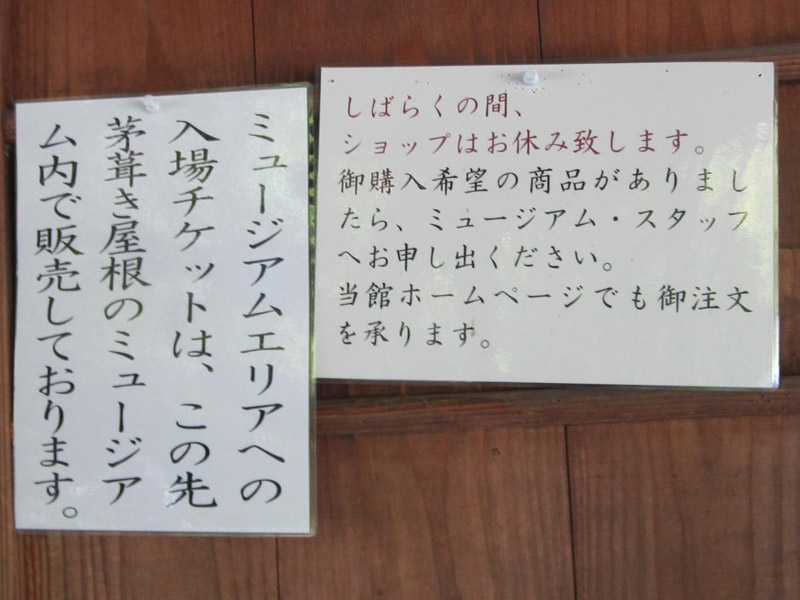 ミュージアムエリアへの
入場チケットは、この先
茅葺き屋根のミュージア
ム内で販売しております。
しばらくの間、
ショップはお休み致します。
御購入希望の商品がありまし
たら、ミュージアム・スタッフ
へお申し出ください。
当館ホームページでも御注文
を承ります。